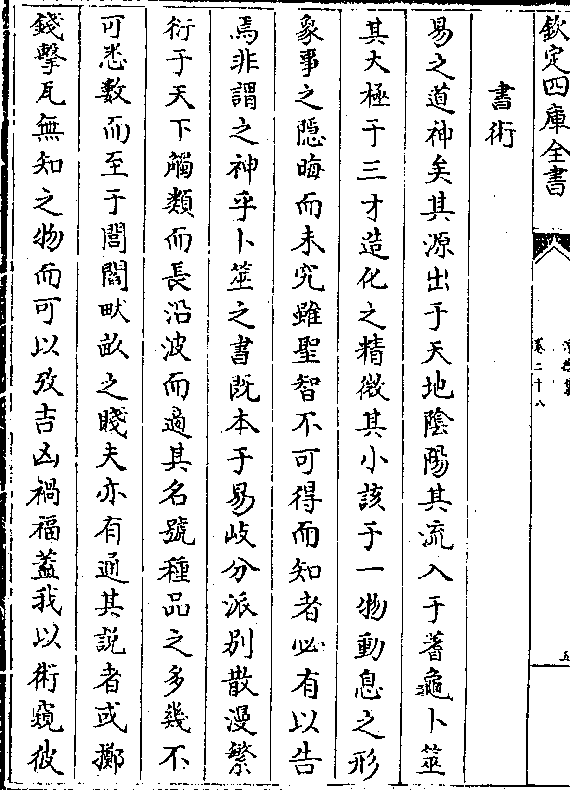 欽定四庫全書
卷二十八
五
書術
易之道神矣其源出于天地陰陽其流入于蓍龜卜筮
其大極于三才造化之精微其小該于一物動息之形
象事之隱晦而未究雖聖智不可得而知者必有以告
焉非謂之神乎卜筮之書旣本于易岐分派別散漫繁
衍于天下觸類而長沿波而過其名號種品之多幾不
可悉數而至于閭閻畎畝之賤夫亦有通其説者或擲
錢擊瓦無知之物而可以攷吉凶禍福蓋我以術窺彼